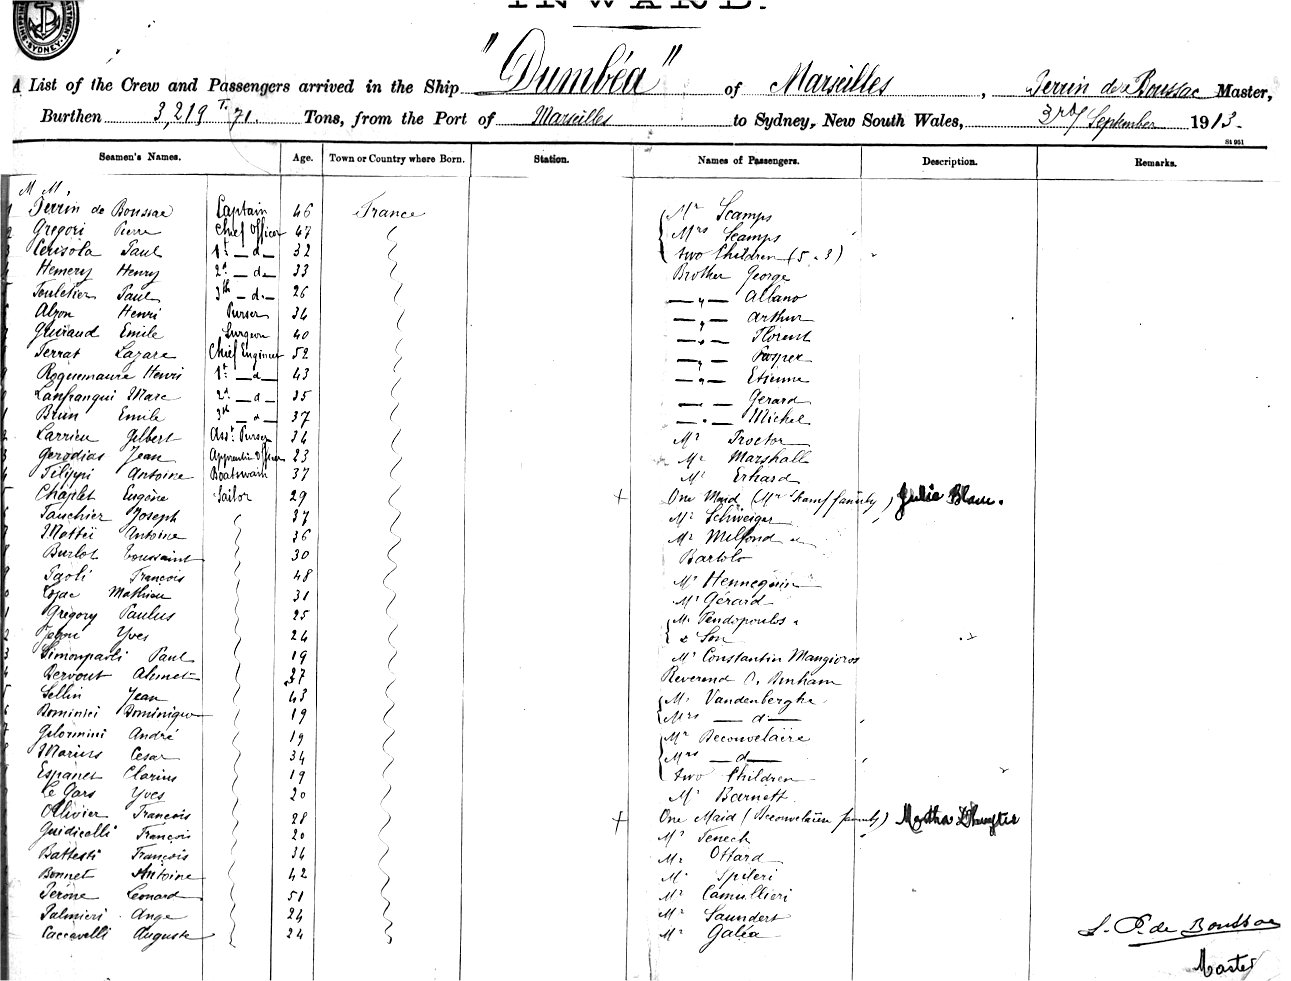 INWARD.
SHIPPING SYDNEY
A List of the Crew and Passengers arrived in the Ship "Dumbéa" of Marseilles, Perrin de Boussac Master,
Burthen 3,219 T. 71. Tons, from the Port of Marseilles to Sydney, New South Wales, 3rd September 1913.
St 951
Seamen's Names. Age. Town or Country where Born. Station. Names of Passengers. Description. Remarks.
M M.
1 Perrin de Boussac Captain 46 France Mr Scamps
2 Gregori Pierre Chief Officer 47 Mrs Scamps
3 Cerisola Paul 1st — d — 32 two Children (5 - 3)
4 Hemery Henry 2d — d — 33 Brother George
Paul 3th — d — 26 — " — Albano
Alzon Henri Purser 34 — " — Arthur
Guiraud Emile Surgeon 40 — " — Florent
Ferrat Lazare Chief Engineer 52 — " —
9 Roquemaure Henri 1st — d — 43 — " — Etienne
Lanfranqui Marc 2d — d — 35 — " — Gerard
1 Brun Emile 3rd — d — 37 — " — Michel
2 Larrieu Gilbert Asst Purser 34 Mr Proctor
3 Gerodias Jean Apprentice Officer 23 Mr Marshall
4 Filippi Antoine Boatswain 37 Mr Erhard
5 Chaplet Eugène Sailor 29 + One Maid (Mr Scamps family) Julia Blanc.
6 Joseph 37 Mr Schweiger
7 Mattéi Antoine 36 Mr Milfond
8 Burlot Toussaint 30 Bartolo
9 Paoli François 48 Mr Hennequin
0 Mathieu 31 Mr Gérard
1 Gregory Paulus 25 Mr Pendopoulos
2 Yves 24 & Son
3 Simonpaoli Paul 19 Mr Constantin Mangioros
4 Ahmet 37 Reverend Bunham
5 Sellin Jean 43 Mr Vandenberghe
6 Dominici Dominique 19 Mrs — d —
7 Gelormini André 19 Mr Deconvelaire
8 Marius Cesar 34 Mrs — d —
Espanet Clarius 19 two Children
Le Gars Yves 20 Mr Barnett
Ollivier François 28 + One Maid (Deconvelaire family) Martha
2 Guidicelli François 20 Mr Fenech
Battesti François 34 Mr Ottard
Bonnet Antoine 42 Mr Spiteri
Perone Leonard 51 Mr Camillieri
Palmieri Ange 24 Mr Saundert
Caccavelli Auguste 24 Mr Galéa
P. de Boussac
Master